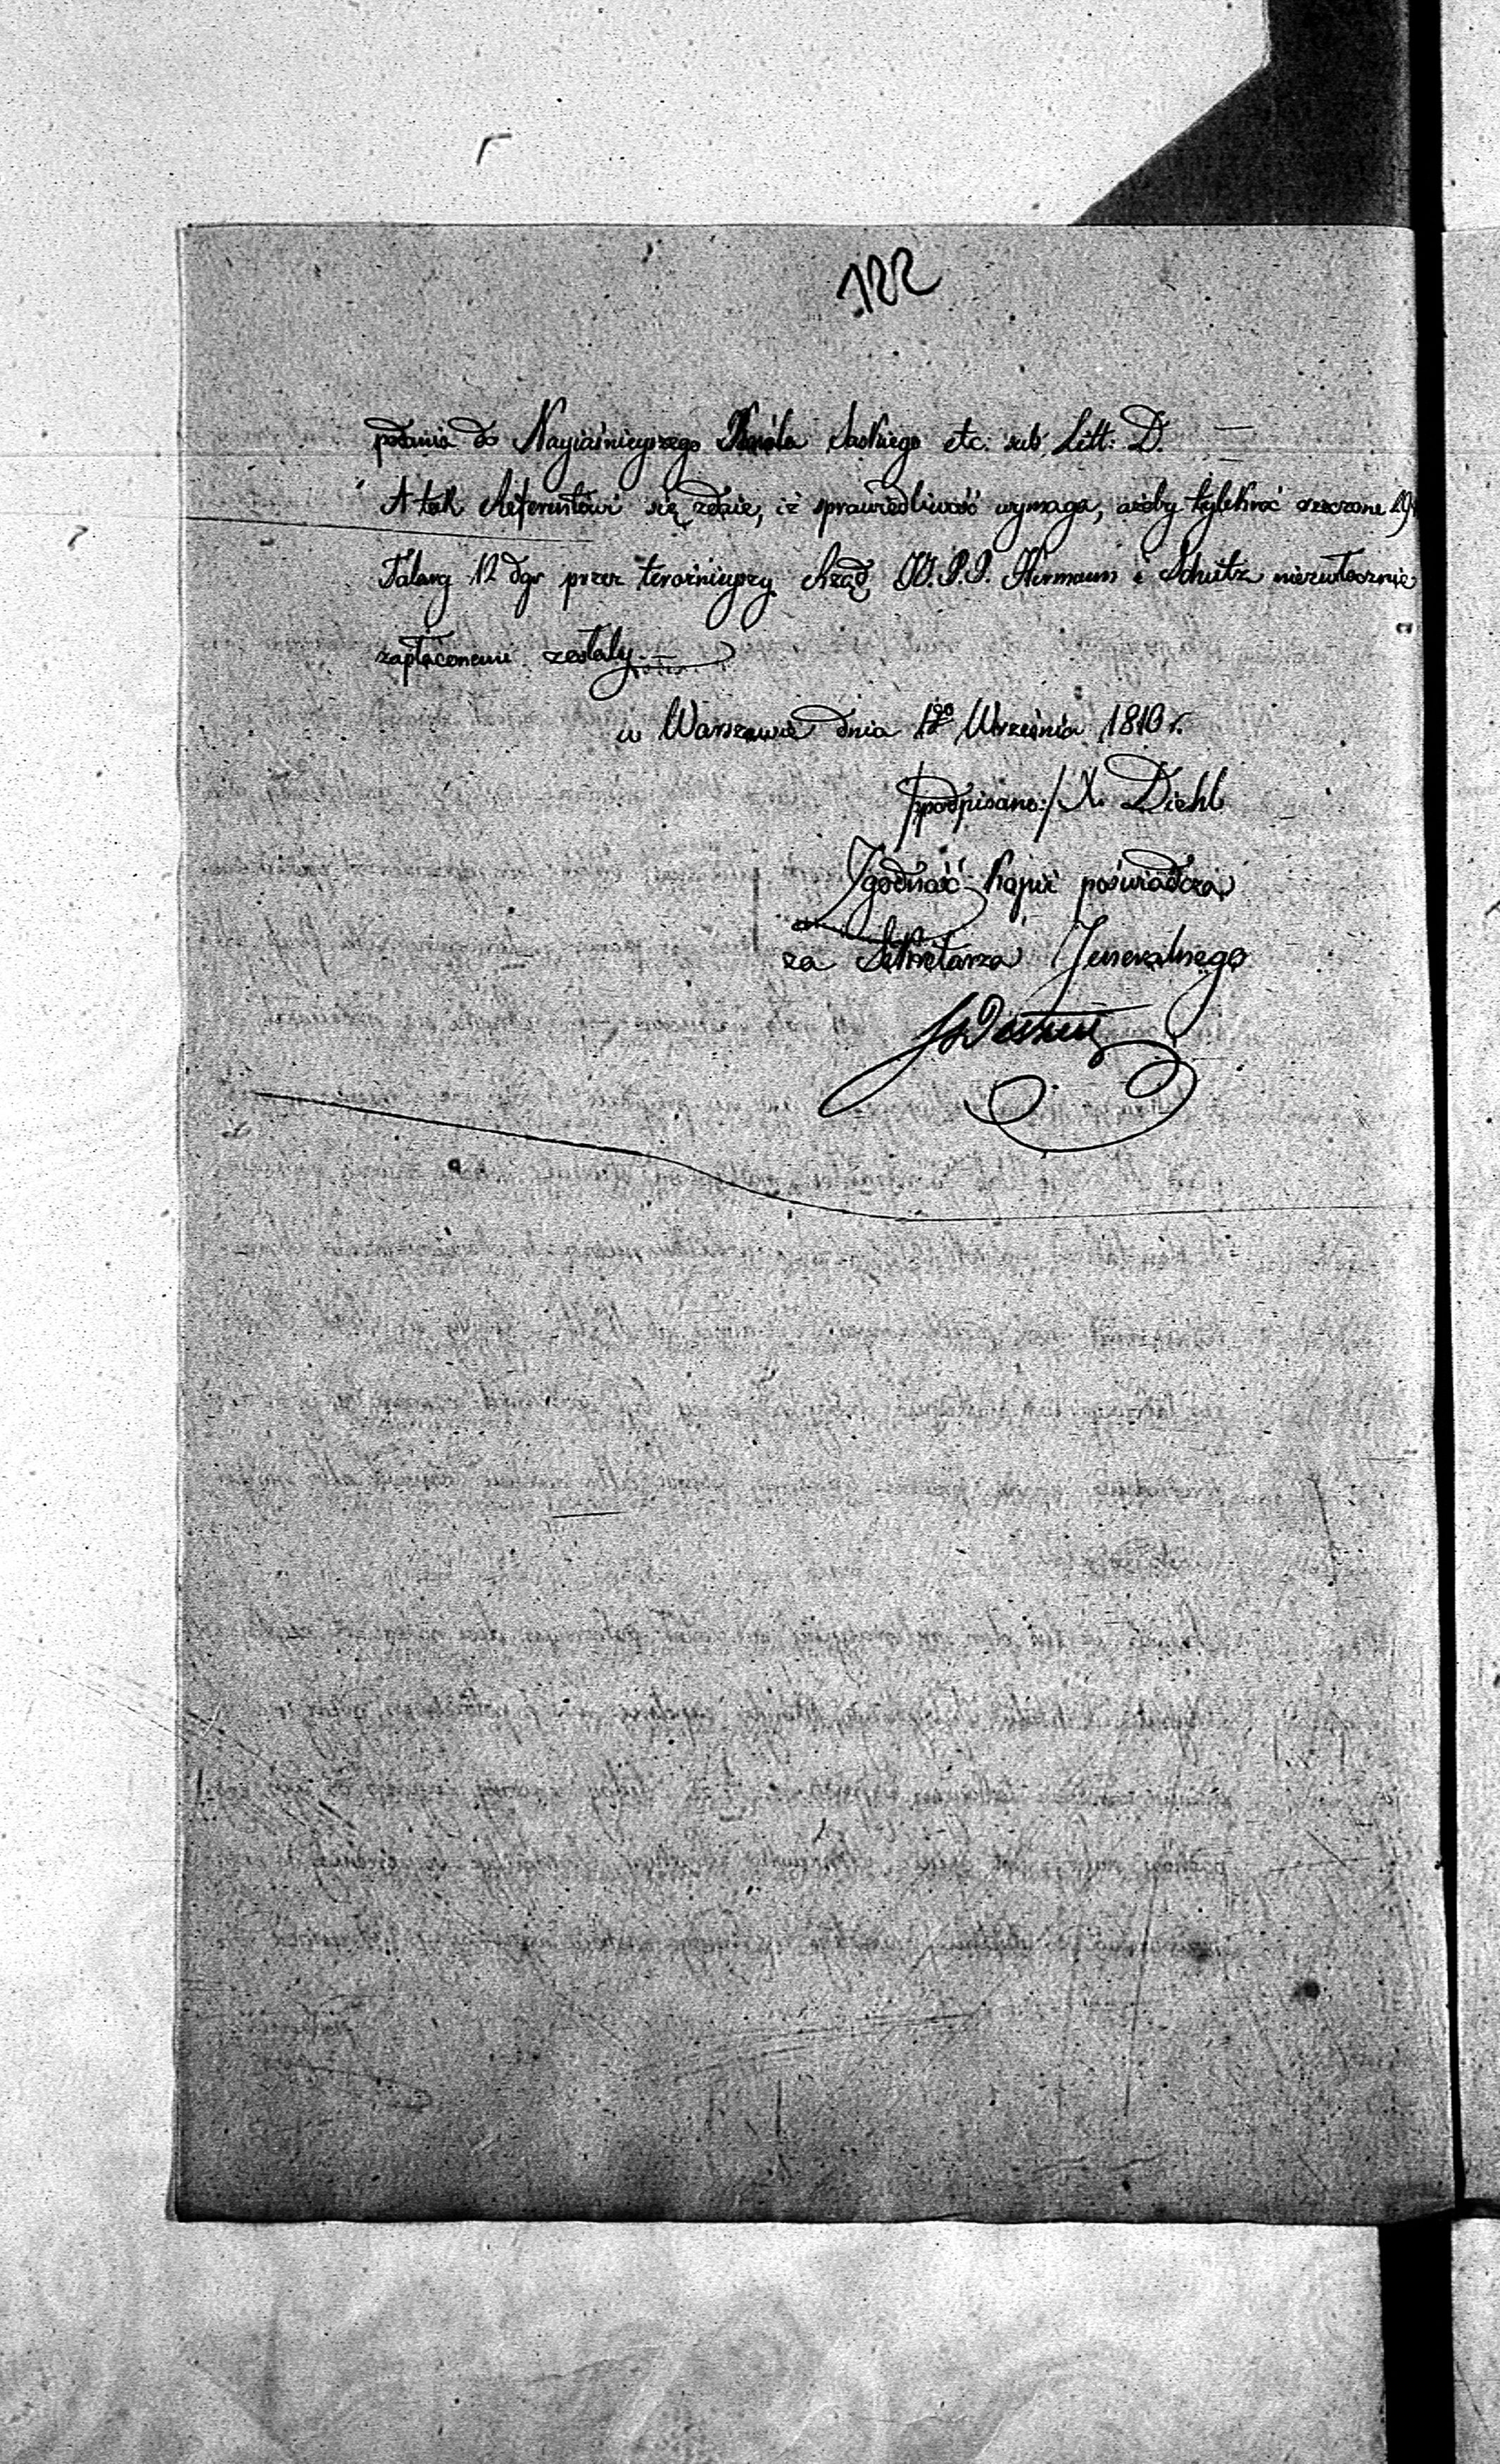 122
podania do Nayiaśnieyszego Króla Saskiego etc. sub Litt: D.
A tak Referentowi się zdaie, iż sprawiedliwość wymaga, ażeby tylekroć rzeczone
Talary 12 dgr przez teraźnieyszy Rząd P.P. Hermann i Schultz niezwłocznie
zapłaconemi zostały.
w Warszawie dnia Września 1810 r.
/:podpisano:/ X. Diehl
Zgodność kopii poświadcza
za Sekretarza Jeneralnego